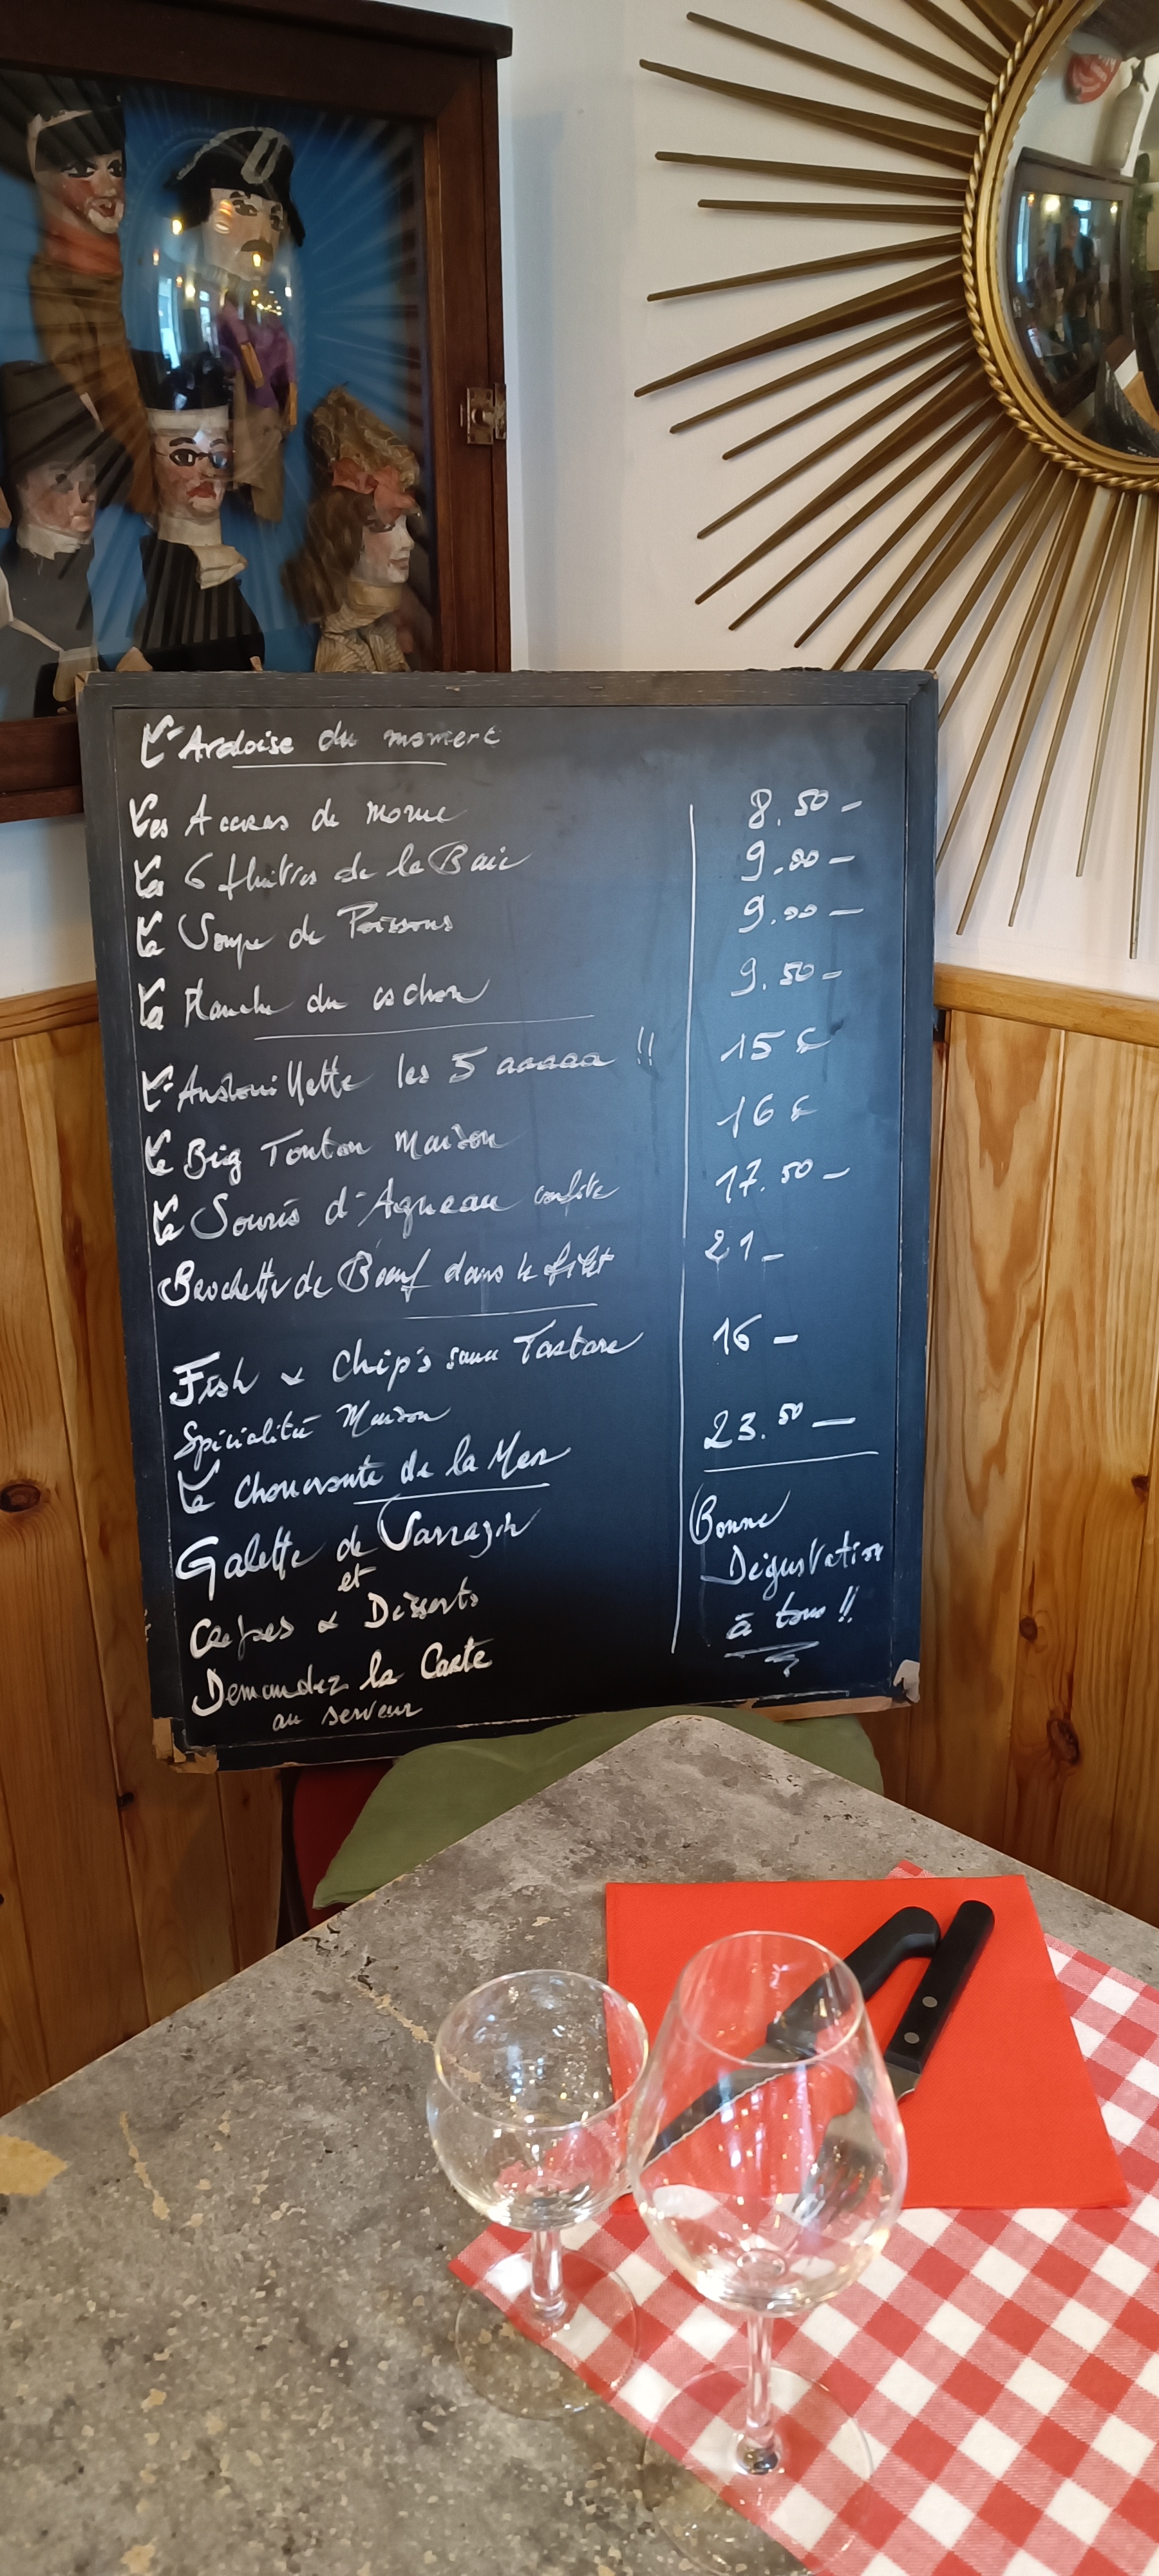 L'Ardoise du moment
Les Accras de morue 8.50 -
Les 6 Huîtres de la Baie 9.00 -
La Soupe de Poissons 9.00 -
La Planche du cochon 9.50 -
L'Andouillette les 5 aaaaa !! 15 €
Le Big Tonton Maison 16 €
La Souris d'Agneau confite 17.50 -
Brochette de Bœuf dans le filet 21 -
Fish & Chip's sauce Tartare 16 -
Spécialité Maison
La Choucroute de la Mer 23.50 -
Galette de Sarrazin
et
Crêpes & Desserts
Demandez la Carte
au serveur
Bonne
Dégustation
à tous !!